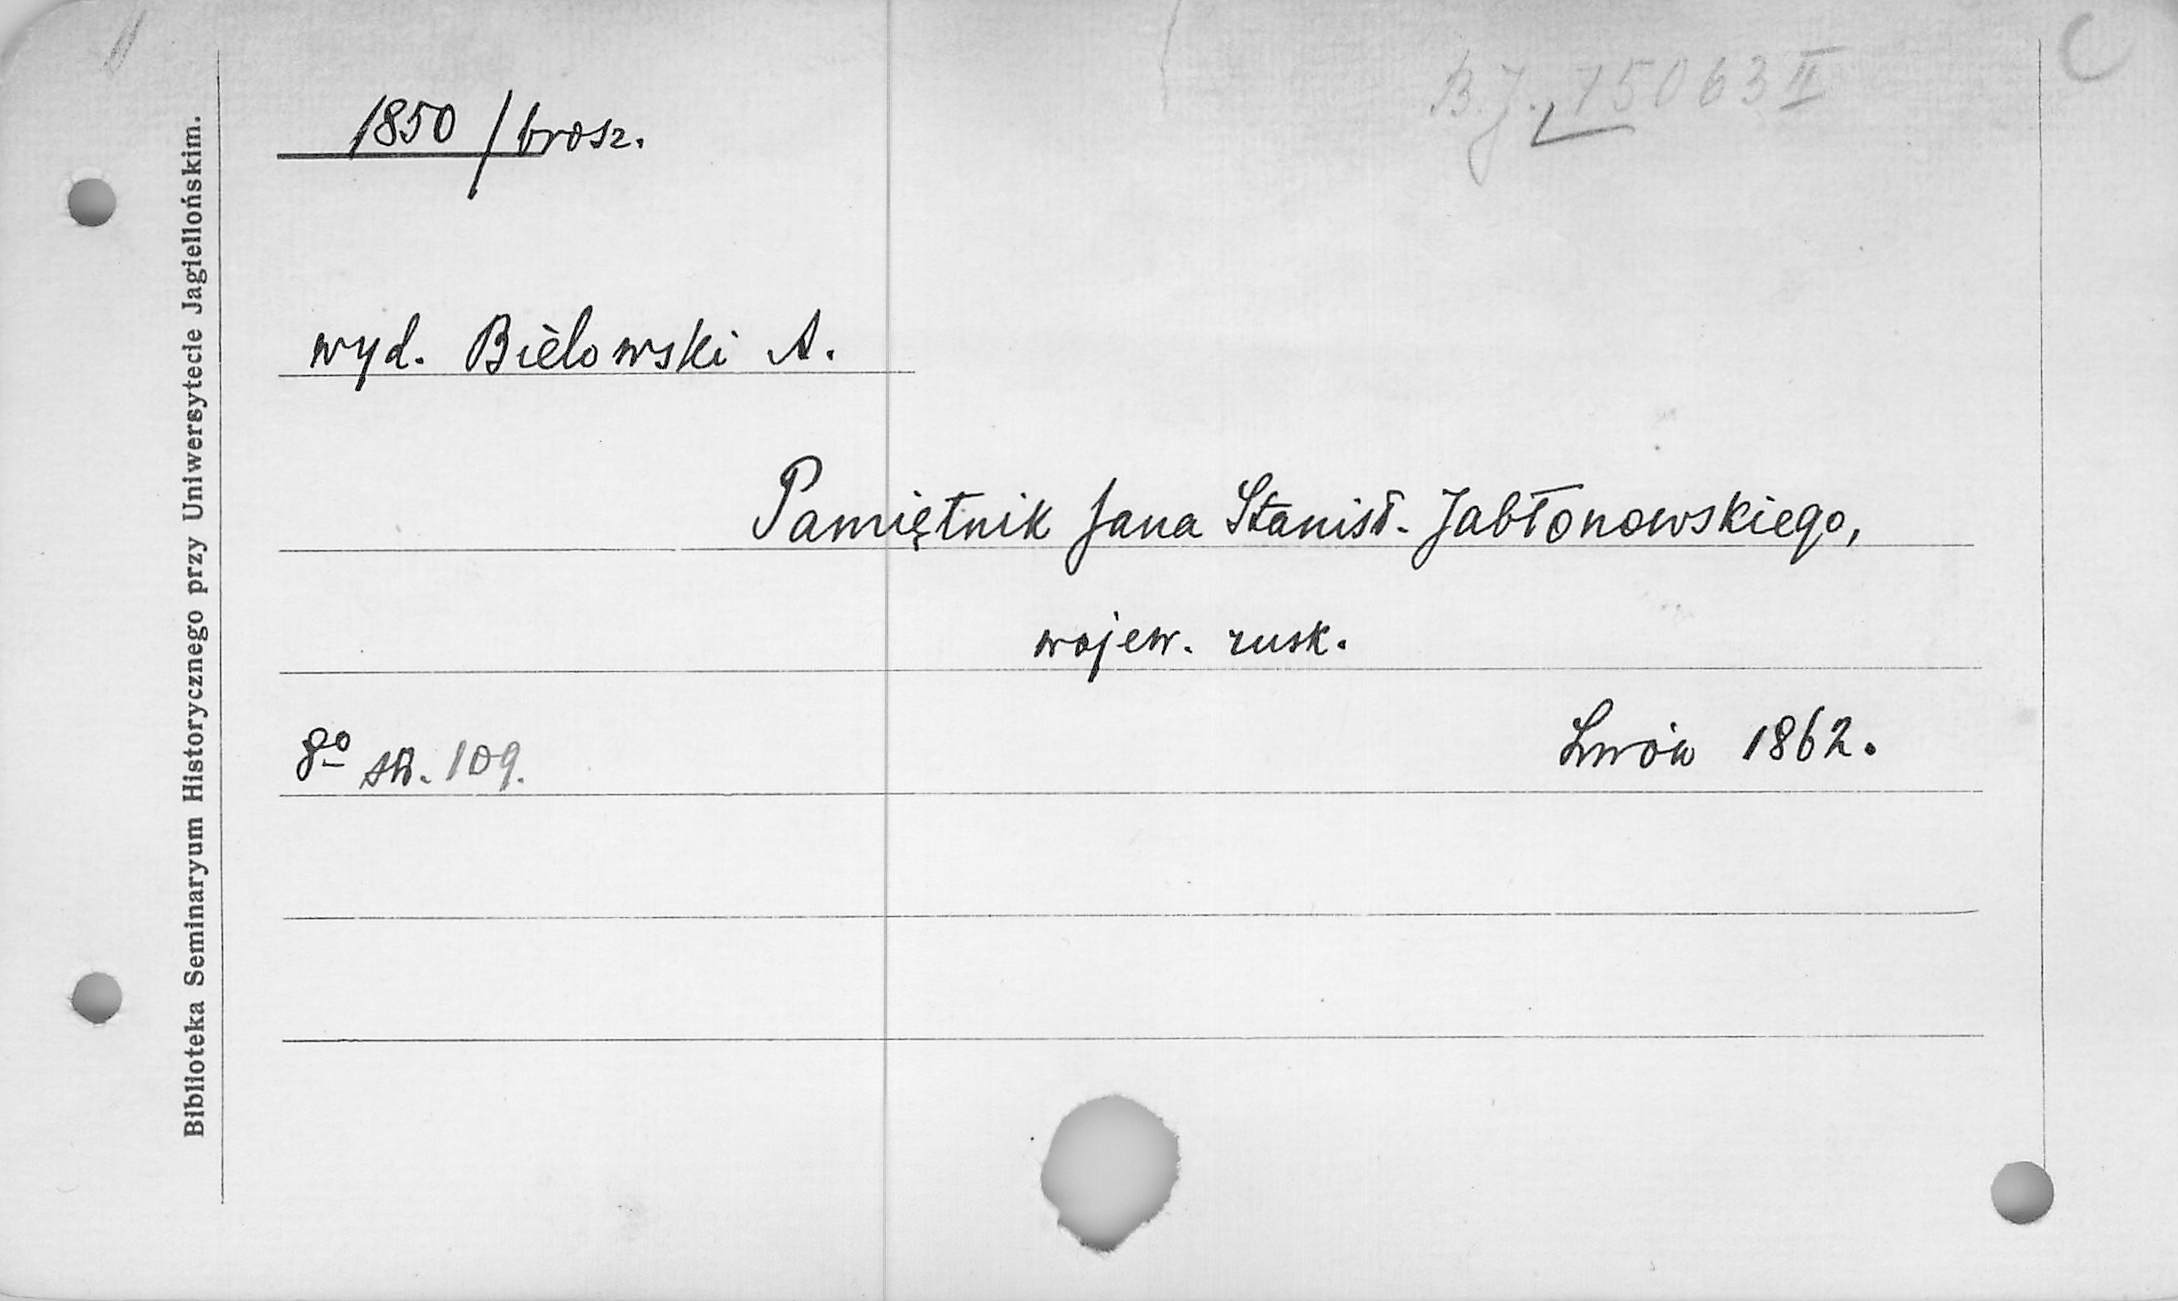 B.J. 75063 II
1850 / brosz.
wyd. Bielowski A.
Pamiętnik Jana Stanisł. Jabłonowskiego,
wojew. rusk.
Lwów 1862.
8º str. 109.
Biblioteka Seminaryum Historycznego przy Uniwersytecie Jagiellońskim.